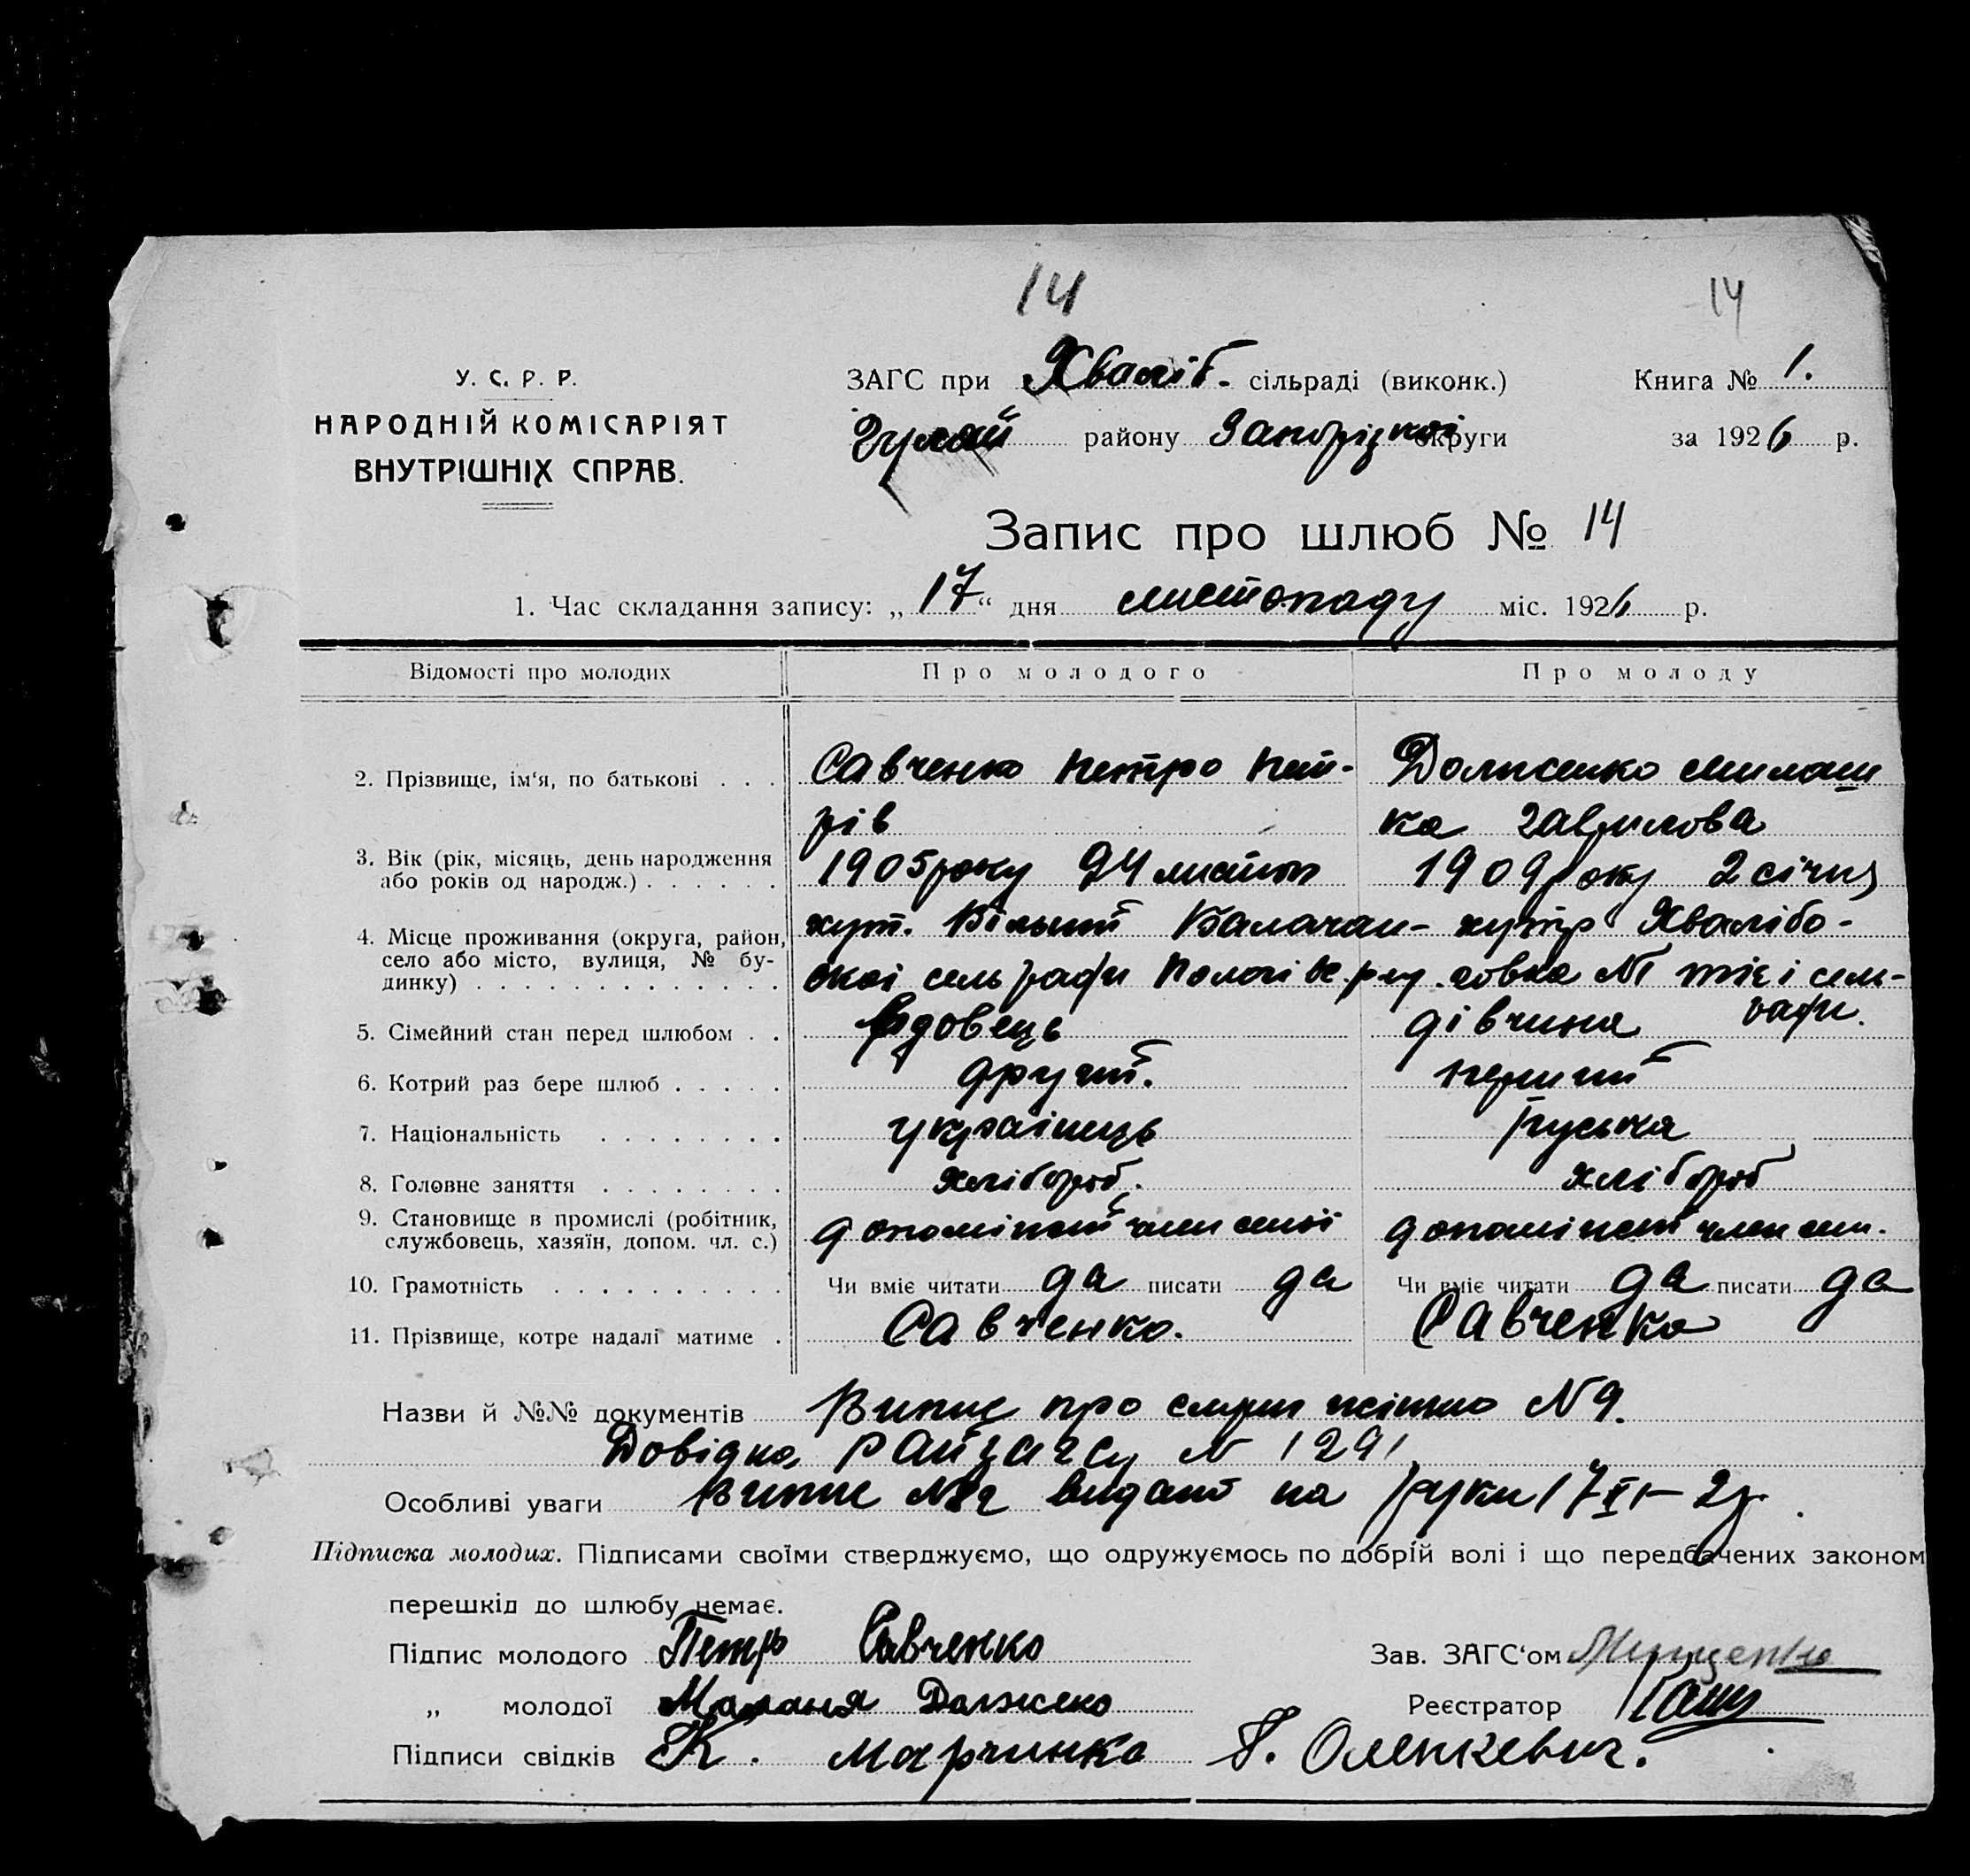 14
14
У. С. Р. Р.
НАРОДНІЙ КОМІСАРІЯТ
ВНУТРІШНІХ СПРАВ.
ЗАГС при Хваліб. сільраді (виконк.)
Книга № 1.
Гуляй району Запорізкоі округи
за 1926 р.
Запис про шлюб № 14
1. Час складання запису: „17“ дня листопаду міс. 1926 р.
Відомості про молодих
Про молодого
Про молоду
2. Прізвище, ім‘я, по батькові . . .
Савченко Петро Пет-
рів
Долженко Милаш
ка Гаврилова
3. Вік (рік, місяць, день народження
або років од народж.) . . . . . .
1905 року 24 листоп
1909 року 2 січня
4. Місце проживання (округа, район,
село або місто, вулиця, № бу-
динку) . . . . . . . . . . . .
хут. Вільний Балочан-
ской сельради Пологівс. рну.
хутір Хвалібо-
говка № тіеі сель-
ради.
5. Сімейний стан перед шлюбом . .
Вдовець
дівчина
6. Котрий раз бере шлюб . . . . .
другий.
перший
7. Національність . . . . . . . .
україінець
руська
8. Головне заняття . . . . . . . .
хлібороб.
хлібороб
9. Становище в промислі (робітник,
службовець, хазяїн, допом. чл. с.)
допоміжний член сімї
допоміжний член сем.
10. Грамотність . . . . . . . . . .
Чи вміє читати да писати да
Чи вміє читати да писати да
11. Прізвище, котре надалі матиме .
Савченко.
Савченко
Назви й №№ документів Випис про смерт жінки N 9.
Довідка Райзагсу N 1291
Особливі уваги Випис видано на руки 17 XI-
Підписка молодих. Підписами своїми стверджуємо, що одружуємось по добрій волі і що передбачених законом
перешкід до шлюбу немає.
Підпис молодого Петр Савченко
Зав. ЗАГС‘ом
„ молодої Маланя Должеко
Реєстратор
Підписи свідків К. Марчинко
Оленкевич.